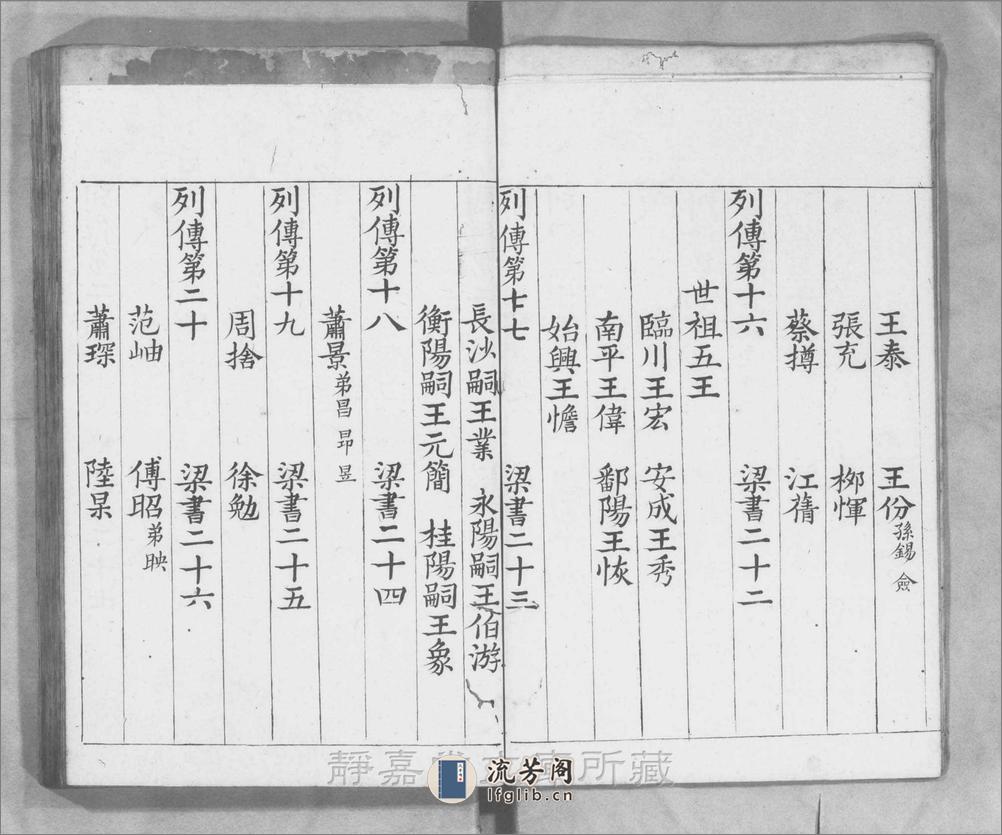 王泰　王份孫錫　僉
張充　桞惲
蔡撙　江蒨
列傳第十六　梁書二十二
世祖五王
臨川王宏　安成王秀
南平王偉　鄱陽王恢
始興王憺
列傳第十七　梁書二十三
長沙嗣王業　永陽嗣王伯游
衡陽嗣王元簡　桂陽嗣王象
列傳第十八　梁書二十四
蕭景弟昌　昂　昱
列傳第十九　梁書二十五
周捨　徐勉
列傳第二十　梁書二十六
范岫　傅昭弟映
蕭琛　陸杲
靜嘉堂文庫所藏
流芳阁
lfglib.cn